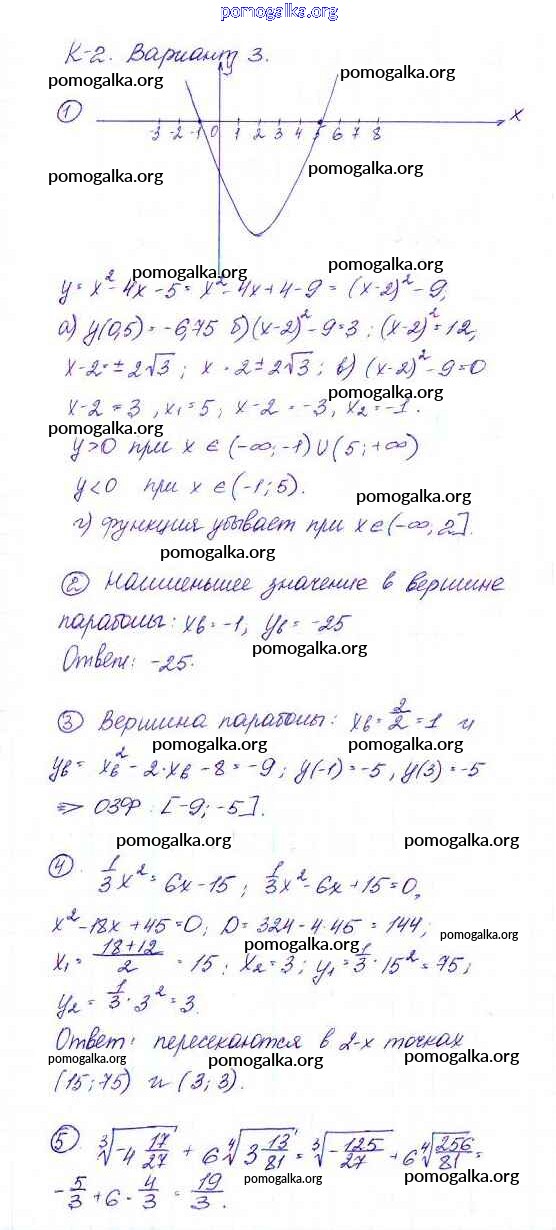 pomogalka.org
К-2. Вариант 3.
pomogalka.org pomogalka.org
① y x
-3 -2 -1 0 1 2 3 4 5 6 7 8
pomogalka.org pomogalka.org
pomogalka.org pomogalka.org
y = x² - 4x - 5 = x² - 4x + 4 - 9 = (x-2)² - 9;
а) y(0,5) = -6,75 б) (x-2)² - 9 = 3; (x-2)² = 12,
x-2 = ± 2√3; x = 2 ± 2√3; в) (x-2)² - 9 = 0
pomogalka.org
x-2 = 3, x₁ = 5; x-2 = -3, x₂ = -1.
pomogalka.org
y>0 при x ∈ (-∞,-1) ∪ (5; +∞)
y<0 при x ∈ (-1; 5).
pomogalka.org
г) функция убывает при x ∈ (-∞, 2].
pomogalka.org
② Наименьшее значение в вершине
параболы: xв = -1, yв = -25
pomogalka.org
Ответ: -25.
③ Вершина параболы: xв = 2/2 = 1 и
pomogalka.org pomogalka.org
yв = xв² - 2·xв - 8 = -9; y(-1) = -5, y(3) = -5
=> ОЗФ: [-9; -5].
pomogalka.org pomogalka.org
④ 1/3 x² = 6x - 15; 1/3 x² - 6x + 15 = 0,
x² - 18x + 45 = 0; D = 324 - 4·45 = 144;
pomogalka.org pomogalka.org
x₁ = (18+12)/2 = 15; x₂ = 3; y₁ = 1/3 · 15² = 75;
y₂ = 1/3 · 3² = 3.
Ответ: пересекаются в 2-х точках
pomogalka.org pomogalka.org pomogalka.org
(15; 75) и (3; 3).
⑤ ∛(-4 17/27) + 6 ∜(3 13/81) = ∛(-125/27) + 6 ∜(256/81) =
pomogalka.org pomogalka.org
-5/3 + 6 · 4/3 = 19/3.
pomogalka.org